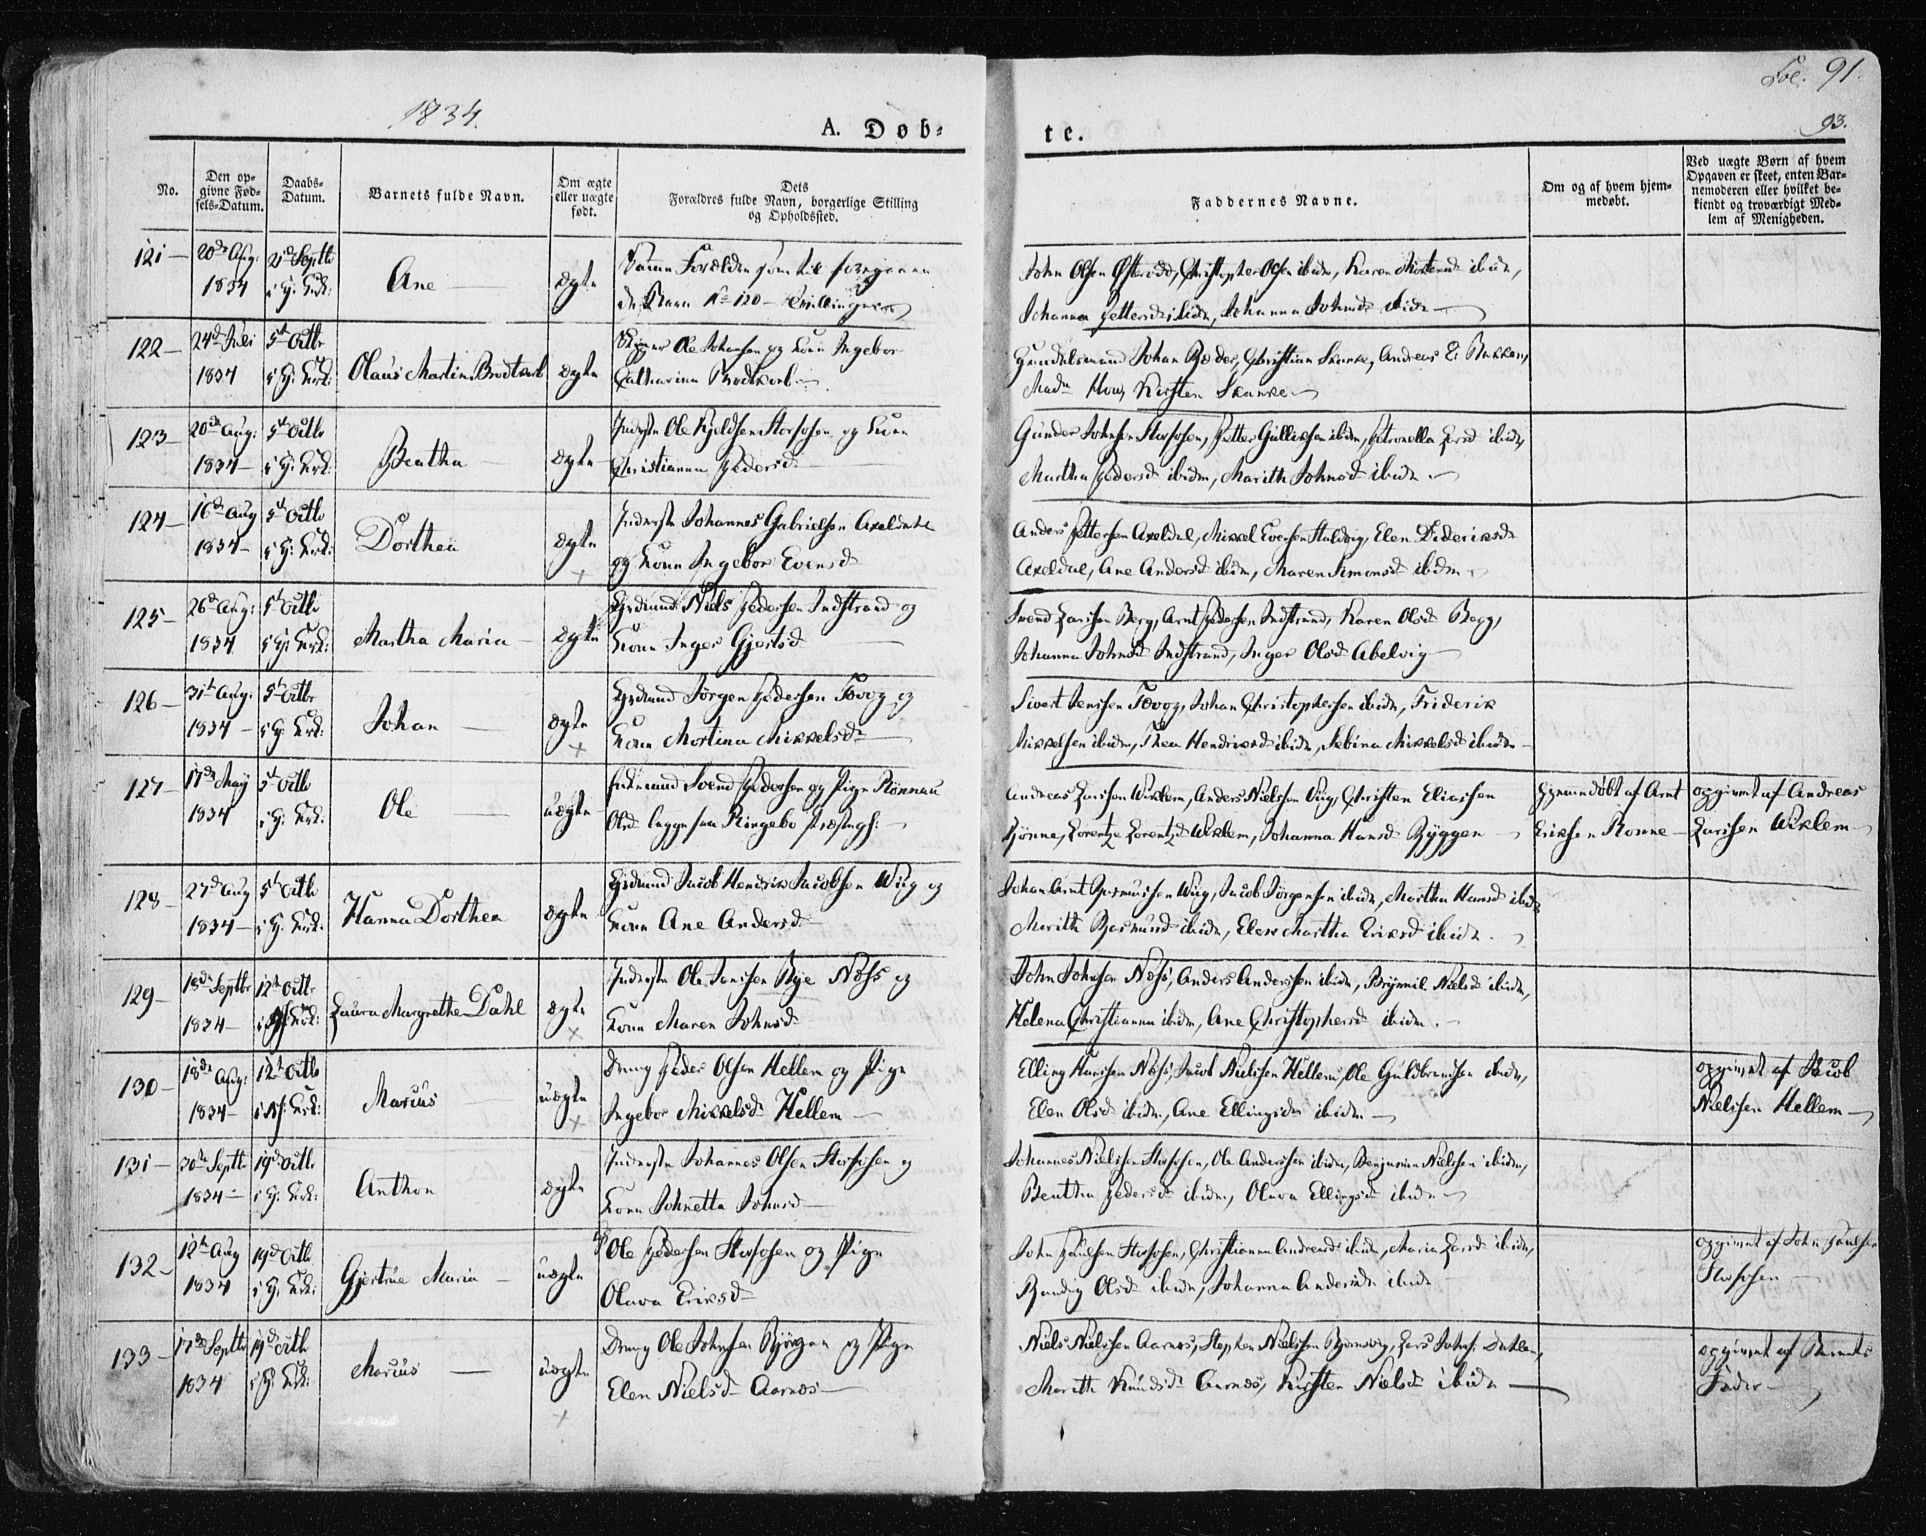 Fol. 91.
1834.
A. Døb-
te.
93.
No.
Den op-
givne Fød-
sels-Datum.
Daabs-
Datum.
Barnets fulde Navn.
Om ægte
eller uægte
født.
Dets
Forældres fulde Navn, borgerlige Stilling
og Opholdssted.
Faddernes Navne.
Om og af hvem hjem-
medøbt.
Ved uægte Børn af hvem
Opgaven er skeet, enten Bar-
nemoderen eller hvilket be-
kiendt og troværdigt Med-
lem af Menigheden.
121 – 20de Aug: Septb
1834
Ane
ægte
Samme Forældre som til foregaaende
Barn No 120 – Tvillinger
John Olsen Christopher Olsen ibidm, Karen ibidm,
Johanna Pettersd ibidm, Johanna Johnsd ibidm
122 – 24de Juli 5te Octbr
1834
Olaus Martin Brodtkorb
ægte
Ole Johansen og Kone Ingebor
Catharina Brodtkorb
Handelsmand Johan Christian Andreas
Kirsten
123 – 20de Aug: 5te Octbr
1834 –
Bentha
ægte
Inderste Ole Kjeldsen Storfosen og Kone
Christianna Pedersd
Gunder Johnsen Storfosen, Petter Gulliksen ibidm, Petronella Larsd ibidm,
Martha Pedersd ibidm, Marith Johnsd ibidm
124 – 16de Aug 5te Octbr
1834 –
Dorthea
ægte
Inderste Johannes Gabrielsen Axeldal
og Kone Ingebor Evensd
Anders Pettersen Axeldal, Mikkel Evensen Elen Dideriksd
Axeldal, Ane Andersd ibidm, Maren Simonsd ibidm
125 – 26de Aug: 5te Octbr
1834
Martha Maria
ægte
Niels Pedersen Indstrand og
Kone Inger Gjertsd
Svend Larssen Berg, Arnt Pedersen Indstrand, Karen Olsd Berg,
Johanna Johnsd Indstrand, Inger Olsd Abelvig
126 – 31te Aug: 5te Octbr
1834 –
Johan
ægte
Jørgen Pedersen Tøvog og
Kone Martina Mikkelsd
Sivert Jenssen Tøvog, Johan Christophersen ibidm, Friderik
Mikkelsen ibidm, Thea Hendriksd ibidm, Sebina Mikkelsd ibidm
127 – 17de May 5te Octbr
1834
Ole
uægte
Svend Pedersen og Pige Rønnau
Olsd Ringebo
Andreas Larssen Wiklem, Anders Nielsen Christen Eliassen
Lorentze Lorentzd Wiklem, Johanna Hansd Byggen
hjemmedøbt af Arnt
Eriksen
opgivet af Andreas
Larssen Wiklem
128 – 27de Aug 5te Octbr
1834 –
Hanna Dorthea
ægte
Jacob Hendrik Jacobsen og
Kone Ane Andersd
Johan Arnt Rasmussen Jacob Jørgensen ibidm, Martha Hansd ibidm
Marith Rasmusd ibidm, Elen Martha Eriksd ibidm
129 – 18de Septbr 12te Octbr
1834 –
Laura Margrethe Dahl
ægte
Inderste Ole Næss og
Kone Maren Johnsd
John Johnsen Næss, Anders Anderssen ibidm, Nielsd ibidm,
Helena Christianna ibidm, Ane Christophersd ibidm
130 – 18de Aug: 12te Octbr
1834 –
Marius
uægte
Dreng Peder Olsen Hellem og Pige
Ingebor Mikkelsd Hellem
Elling Hanssen Næss, Jacob Nielssen Hellem, Ole Guldbrandsen ibidm,
Elen Olsd ibidm, Ane Ellingsd ibidm
opgivet af Jacob
Nielssen Hellem
131 – 30te Septb 19de Octbr
1834 –
Anthon
ægte
Inderste Johannes Olsen Storfosen og
Kone Johnetta Johnsd
Johannes Nielssen Storfosen, Ole Anderssen ibidm, Benjamin Nielssen ibidm,
Bentha Pedersd ibidm, Olava Ellingsd ibidm
132 – 12te Aug 19de Octb
1834
Gjertrue Maria
uægte
Ole Pedersen Storfosen og Pige
Olava Eriksd
John Paulsen Storfosen, Christianna Andersd ibidm, Maria Larsd ibidm,
Olsd ibidm, Johanna Andersd ibidm
opgivet af John Paulsen
Storfosen
133 – 17de Septb 19de Octb
1834
Marius
uægte
Dreng Ole Johnsen og Pige
Elen Nielsd Aarnes
Niels Nielssen Aarnes, Stephen Nielssen Lars Johns:
Marith Knudsd Aarnes, Kirsten Nielsd ibidm
opgivet af Barnets
Fader